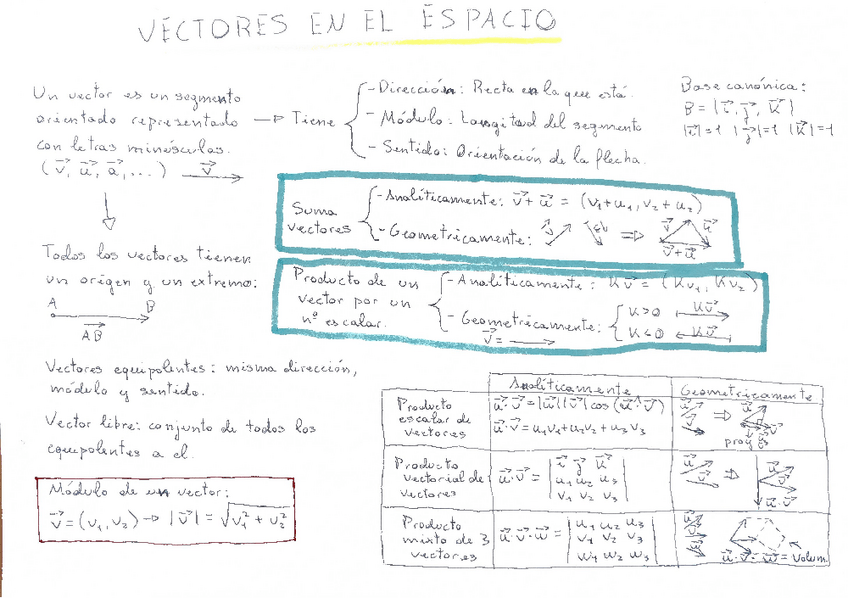 VECTORES EN EL ESPACIO
Un vector es un segmento
orientado representado
con letras minúsculas.
(v⃗, u⃗, a⃗, ...) v⃗
→ Tiene
- Dirección: Recta en la que está.
- Módulo: Longitud del segmento
- Sentido: Orientación de la flecha.
Base canónica:
B = | i⃗, j⃗, k⃗ |
|i⃗|=1 |j⃗|=1 |k⃗|=1
Suma
vectores
- Analíticamente: v⃗+u⃗ = (v₁+u₁, v₂+u₂)
- Geometricamente: v⃗ u⃗ ⇒ v⃗ u⃗
v⃗+u⃗
Todos los vectores tienen
un origen y un extremo:
A B
AB⃗
Producto de un
vector por un
nº escalar.
- Analíticamente: Kv⃗ = (Kv₁, Kv₂)
- Geometricamente:
v⃗=
K>0 Kv⃗
K<0 Kv⃗
Vectores equipolentes: misma dirección,
módulo y sentido.
Vector libre: conjunto de todos los
equipolentes a el.
Módulo de un vector:
v⃗=(v₁,v₂) → |v⃗| = √v₁²+v₂²
Analíticamente
Geometricamente
Producto
escalar de
vectores
u⃗·v⃗=|u⃗||v⃗|cos(u⃗^v⃗)
u⃗·v⃗=u₁v₁+u₂v₂+u₃v₃
u⃗ v⃗ ⇒ u⃗
proy
Producto
vectorial de
vectores
u⃗·v⃗ = | i⃗ j⃗ k⃗ |
u₁ u₂ u₃
v₁ v₂ v₃
u⃗ v⃗ ⇒ u⃗ v⃗
u⃗·v⃗
Producto
mixto de 3
vectores
u⃗·v⃗·w⃗ = | u₁ u₂ u₃ |
v₁ v₂ v₃
w₁ w₂ w₃
u⃗ v⃗ w⃗
u⃗·v⃗·w⃗ = Volum.